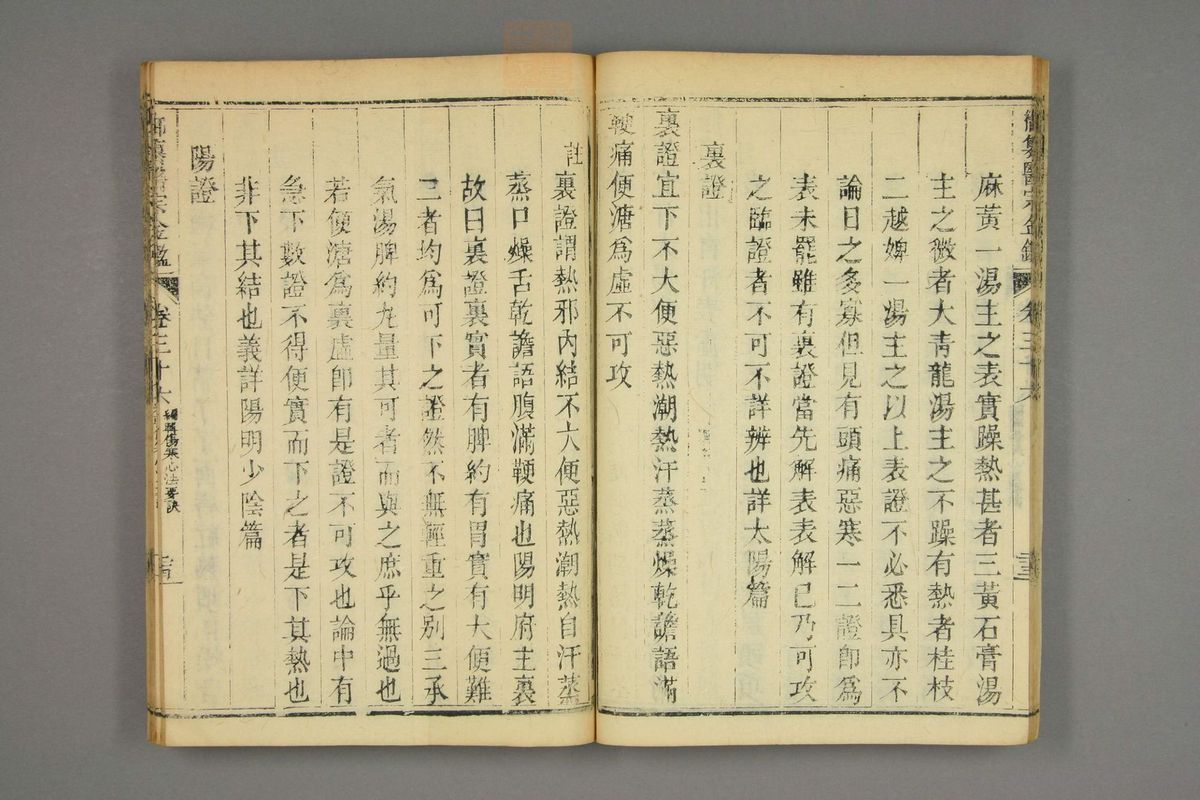 御纂醫宗金鑑 卷三十六
麻黃一湯主之表實躁熱甚者三黃石膏湯
主之微者大青龍湯主之不躁有熱者桂枝
二越婢一湯主之以上表證不必悉具亦不
論日之多寡但見有頭痛惡寒一二證卽爲
表未罷雖有裏證當先解表表解已乃可攻
之臨證者不可不詳辨也詳太陽篇
裏證
裏證宜下不大便惡熱潮熱汗蒸蒸燥乾譫語滿
鞕痛便溏爲虛不可攻
註 裏證謂熱邪內結不大便惡熱潮熱自汗蒸
蒸口燥舌乾譫語腹滿鞕痛也陽明府主裏
故曰裏證裏實者有脾約有胃實有大便難
三者均爲可下之證然不無輕重之別三承
氣湯脾約丸量其可者而與之庶乎無過也
若便溏爲裏虛卽有是證不可攻也論中有
急下數證不得便實而下之者是下其熱也
非下其結也義詳陽明少陰篇
陽證
御纂醫宗金鑑 卷三十六 編輯傷寒心法要訣